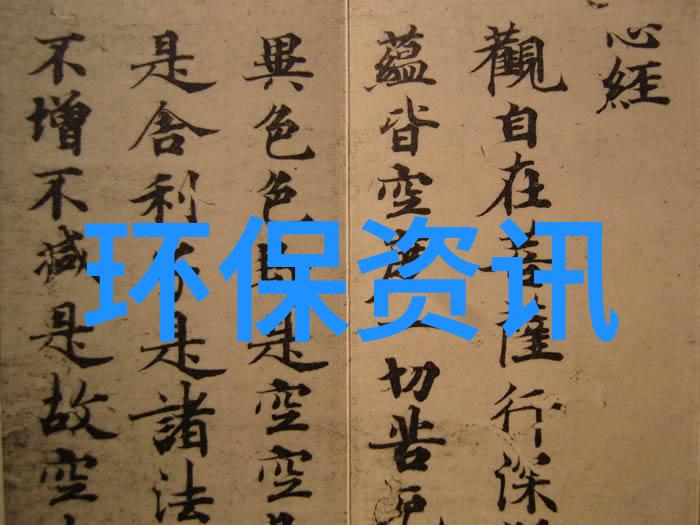 心經
觀自在菩薩行深
蘊皆空度一切苦厄
異色色即是空空是
是舍利子是諸法
不增不減是故空
环保资讯